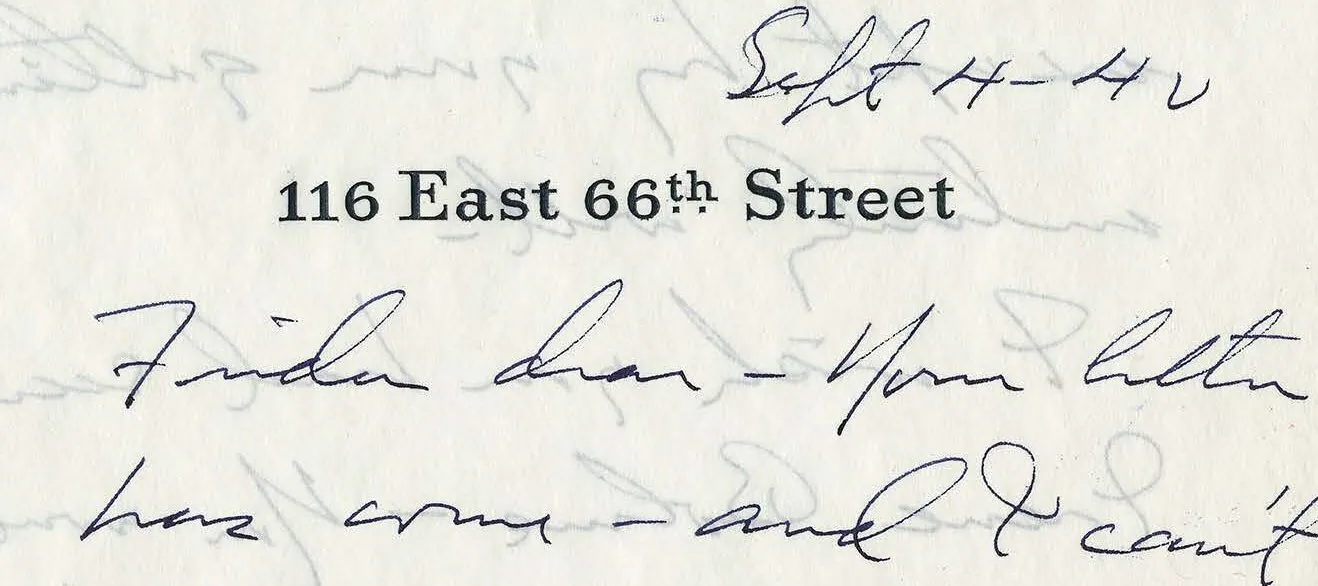 Sept 4-42
116 East 66th Street
Frieda dear - Your letter
has come - and I can't